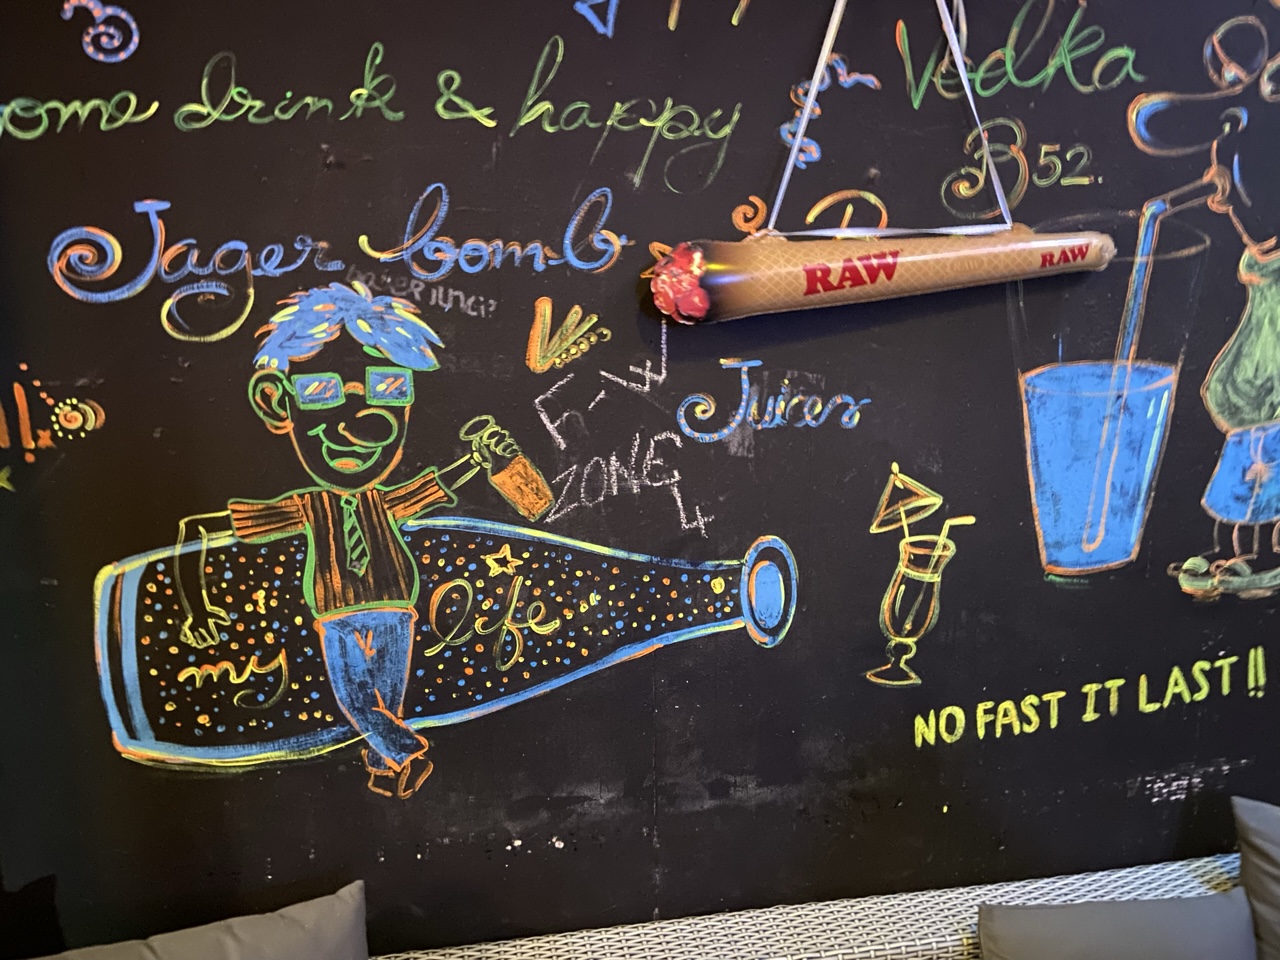 ome drink & happy
Vodka
B52.
Jager bomb
RAW RAW
Juices
ZONE
4
my life
NO FAST IT LAST!!